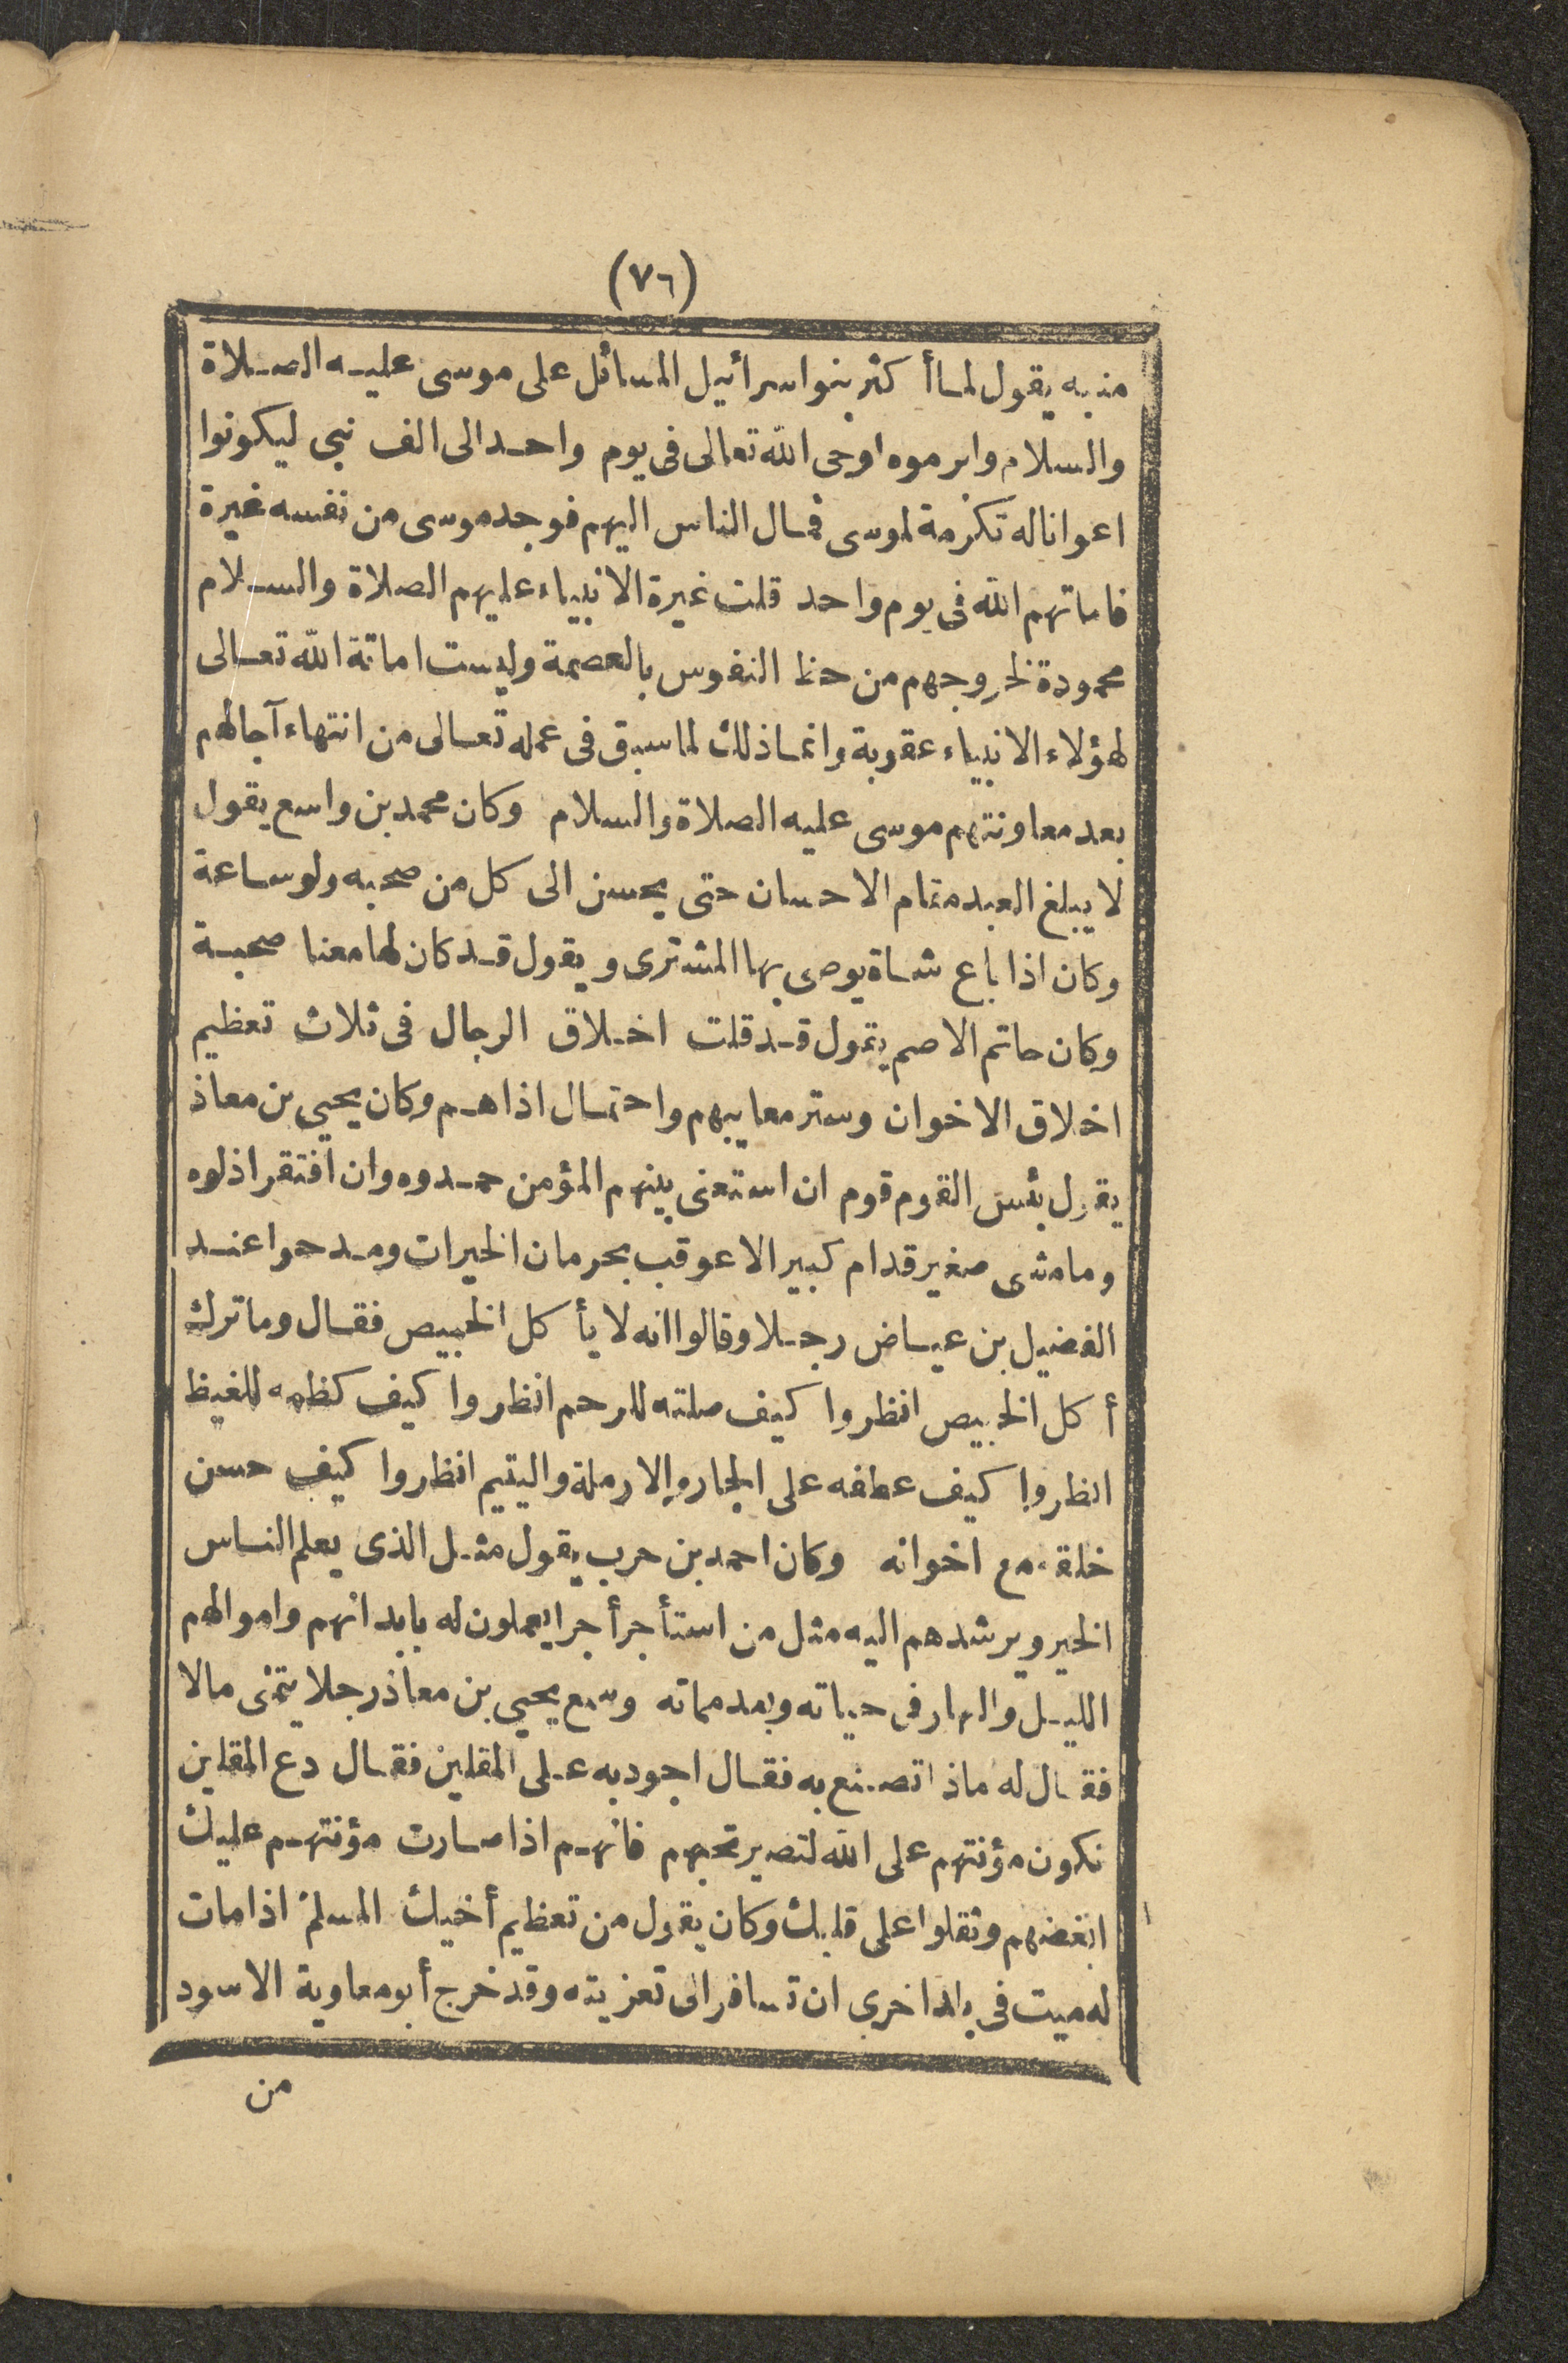 (٧٦)
منبه يقول لما أكثر بنو اسرائيل المسائل على موسى عليه الصلاة
والسلام وابرموه اوحى الله تعالى فى يوم واحد الى الف نبى ليكونوا
اعوانا له تكرمة لموسى فمال الناس اليهم فوجد موسى من نفسه غيرة
فاماتهم الله فى يوم واحد قلت غيرة الانبياء عليهم الصلاة والسلام
محمودة لخروجهم من حظ النفوس بالعصمة وليست اماتة الله تعالى
لهؤلاء الانبياء عقوبة وانما ذلك لما سبق فى عمله تعالى من انتهاء آجالهم
بعد معاونتهم موسى عليه الصلاة والسلام وكان محمد بن واسع يقول
لا يبلغ العبد مقام الاحسان حتى يحسن الى كل من صحبه ولو ساعة
وكان اذا باع شاة يوصى بها المشترى ويقول قد كان لها معنا صحبة
وكان حاتم الاصم يقول قد قلت اخلاق الرجال فى ثلاث تعظيم
اخلاق الاخوان وستر معايبهم واحتمال اذاهم وكان يحيى بن معاذ
يقول بئس القوم قوم ان استغنى بينهم المؤمن حمدوه وان افتقر اذلوه
وما مشى صغير قدام كبير الا عوقب بحرمان الخيرات ومدحوا عند
الفضيل بن عياض رجلا وقالوا انه لا يأكل الخبيص فقال وما ترك
أكل الخبيص انظروا كيف صلته للرحم انظروا كيف كظمه للغيظ
انظروا كيف عطفه على الجار والارملة واليتيم انظروا كيف حسن
خلقه مع اخوانه وكان احمد بن حرب يقول مثل الذى يعلم الناس
الخير ويرشدهم اليه مثل من استأجر أجرا يعملون له بابدانهم واموالهم
الليل والنهار فى حياته وبعد مماته وسمع يحيى بن معاذ رجلا يتمنى مالا
فقال له ماذا تصنع به فقال اجود به على المقلين فقال دع المقلين
تكون مؤنتهم على الله لتصير تحبهم فانهم اذا صارت مؤنتهم عليك
ابغضهم وثقلوا على قلبك وكان يقول من تعظيم أخيك المسلم اذا مات
له ميت فى بلد اخرى ان تسافر الى تعزيته وقد خرج أبو معاوية الاسود
من